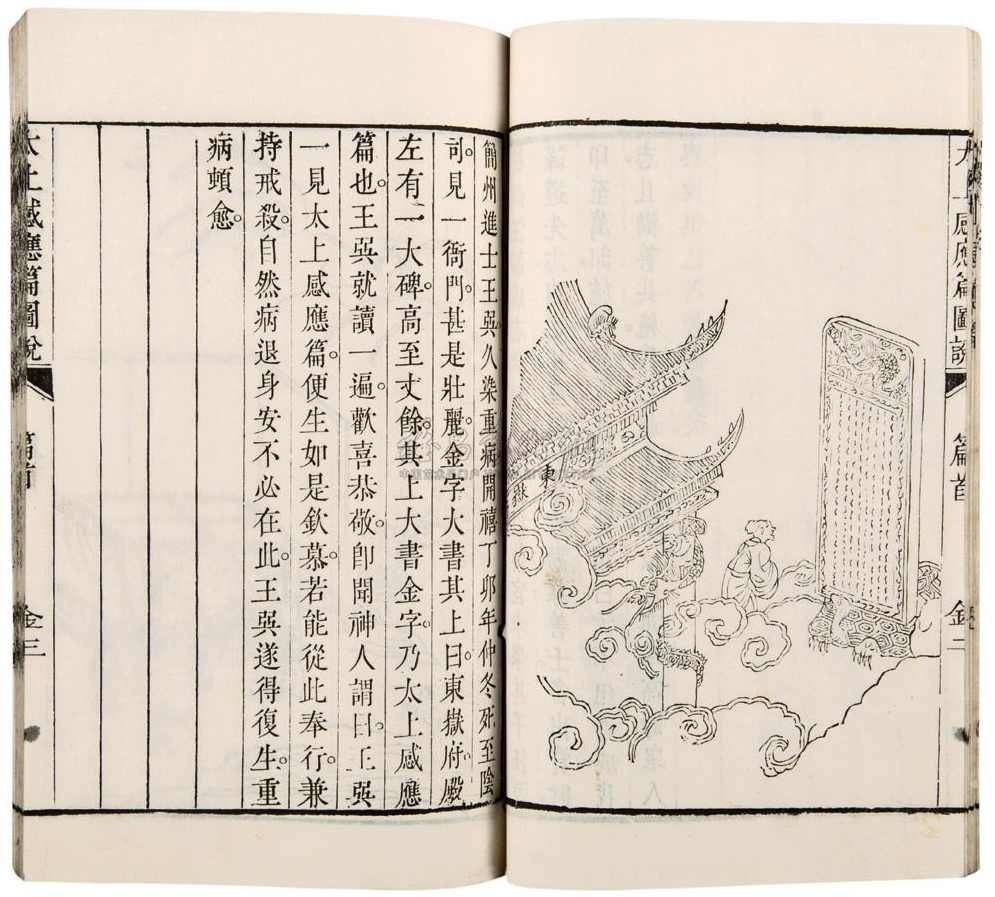 太上感應篇圖說
篇首
金三
東
嶽
簡州進士王巽久染重病開禧丁卯年仲冬死至陰
司。見一衙門。甚是壯麗。金字大書其上。曰東嶽府。殿
左有一大碑。高至丈餘。其上大書金字。乃太上感應
篇也。王巽就讀一遍。歡喜恭敬。卽聞神人謂曰。王巽
一見太上感應篇。便生如是欽慕。若能從此奉行。兼
持戒殺。自然病退身安不必在此。王巽遂得復生。重
病頓愈。
太上感應篇圖說
篇首
金三